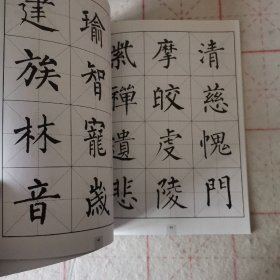 清慈愧門
摩皎虔陵
禪遺悲
瑜智寵歲
建族林音